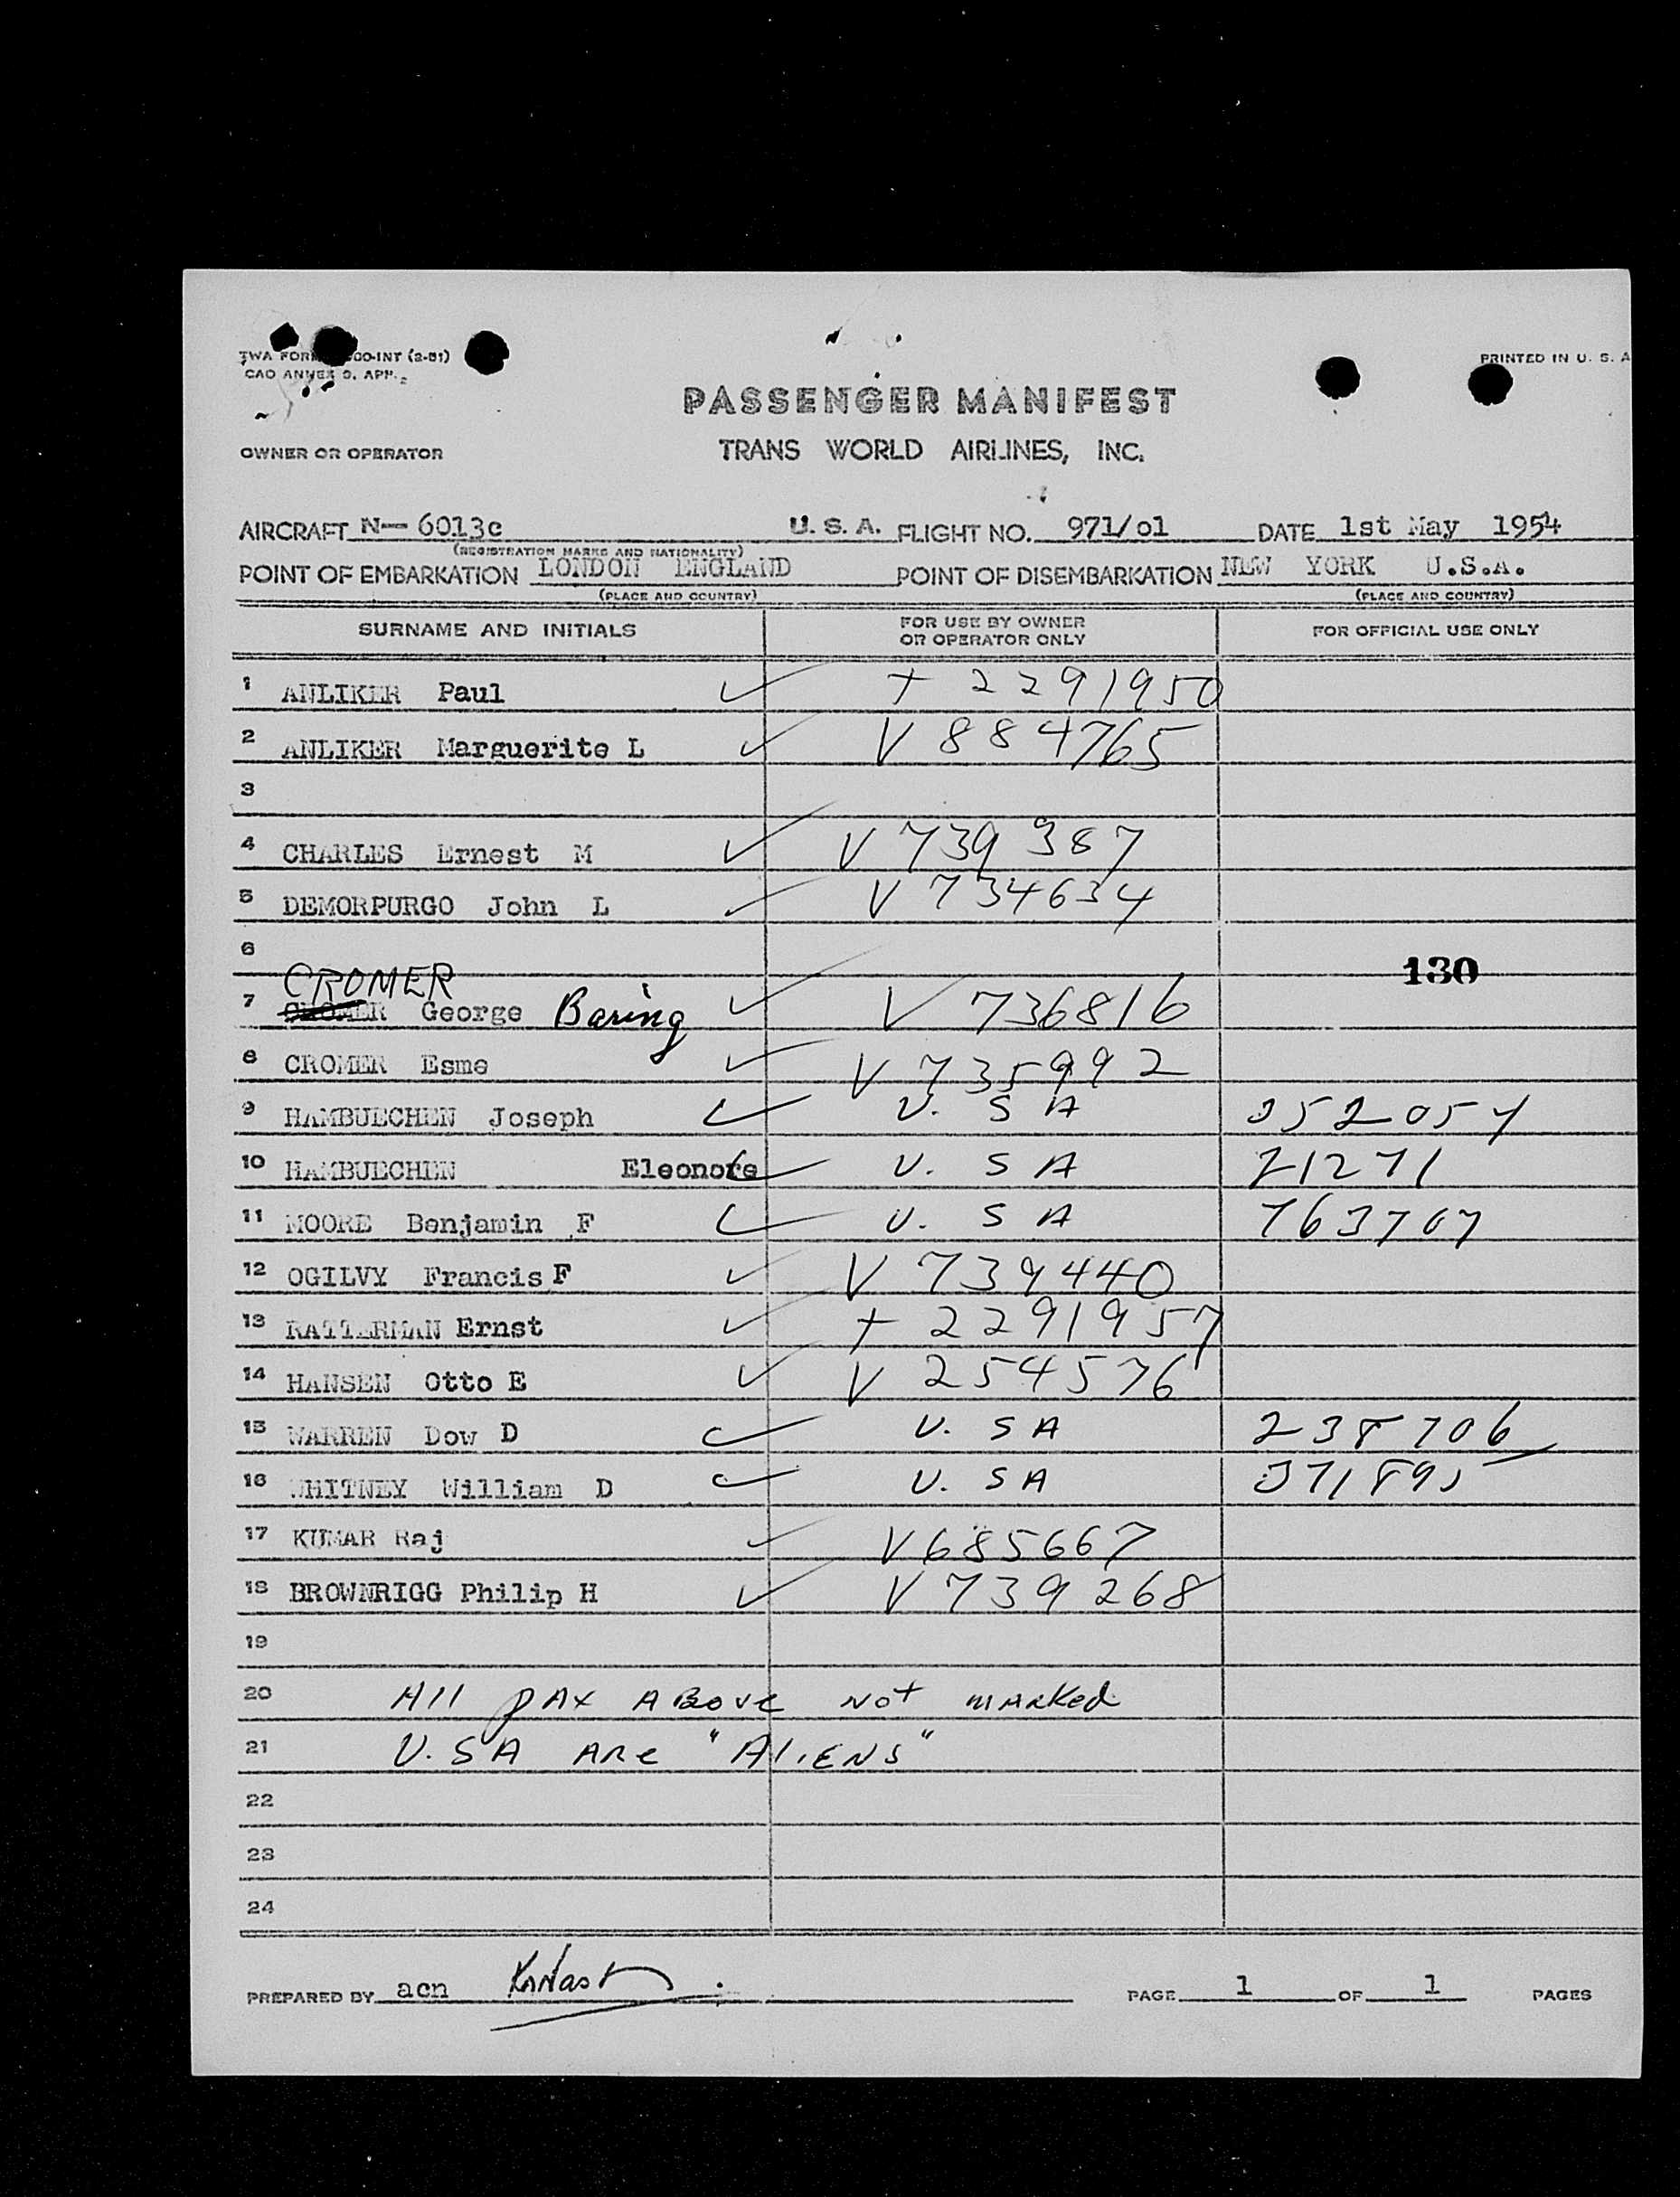 TWA FORM 00-INT (2-51)
PRINTED IN U. S. A
CAO ANNEX 9. APP.
PASSENGER MANIFEST
OWNER OR OPERATOR
TRANS WORLD AIRLINES, INC.
AIRCRAFT N- 6013c U. S. A. FLIGHT NO. 971/01 DATE 1st May 1954
(REGISTRATION MARKS AND NATIONALITY)
POINT OF EMBARKATION LONDON ENGLAND POINT OF DISEMBARKATION NEW YORK U.S.A.
(PLACE AND COUNTRY) (PLACE AND COUNTRY)
SURNAME AND INITIALS FOR USE BY OWNER OR OPERATOR ONLY FOR OFFICIAL USE ONLY
1 ANLIKER Paul ✓ + 2291950
2 ANLIKER Marguerite L ✓ V 884765
3
4 CHARLES Ernest M ✓ V 739 387
5 DEMORPURGO John L ✓ V 734634
6
130
CROMER
7 CROMER George Baring ✓ V 736816
8 CROMER Esme ✓ V 735992
9 HAMBUECHEN Joseph ✓ U. S A 352054
10 HAMBUECHEN Eleonore ✓ U. S A 21271
11 MOORE Benjamin F ✓ U. S A 763707
12 OGILVY Francis F ✓ V 739440
13 RATTERMAN Ernst ✓ + 2291957
14 HANSEN Otto E ✓ V 254576
15 WARREN Dow D ✓ U. S A 238706
16 WHITNEY William D ✓ U. S A 371895
17 KUMAR Raj ✓ V685667
18 BROWNRIGG Philip H ✓ V 739 268
19
20 All pax Above not marked
21 U.SA ARe "AliENS"
22
23
24
PREPARED BY acn PAGE 1 OF 1 PAGES